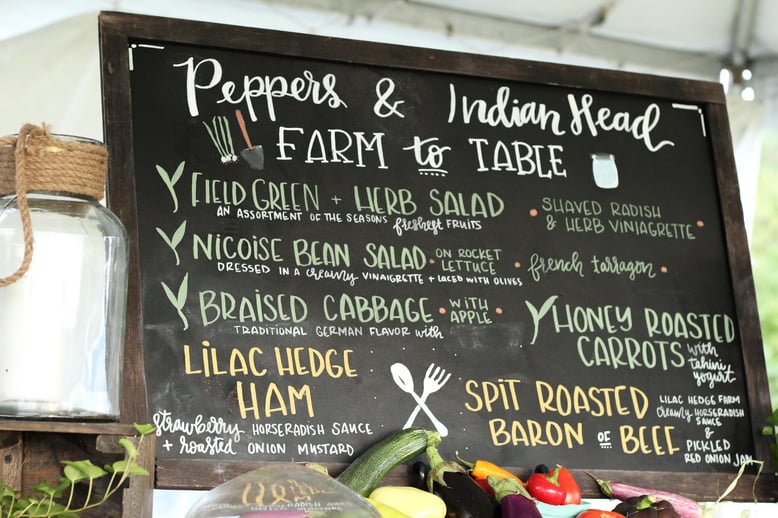 Peppers & Indian Head
FARM to TABLE
FIELD GREEN + HERB SALAD
AN ASSORTMENT OF THE SEASONS freshest FRUITS
• SHAVED RADISH
& HERB VINIAGRETTE •
NICOISE BEAN SALAD • ON ROCKET LETTUCE • french tarragon •
DRESSED IN A creamy VINAIGRETTE + LACED WITH OLIVES
BRAISED CABBAGE • WITH APPLE •
TRADITIONAL GERMAN FLAVOR with
HONEY ROASTED
CARROTS with tahini yogurt
LILAC HEDGE
HAM
strawberry HORSERADISH SAUCE
+ roasted ONION MUSTARD
SPIT ROASTED
BARON OF BEEF
LILAC HEDGE FARM
creamy HORSERADISH
SAUCE
&
PICKLED
RED ONION JAM